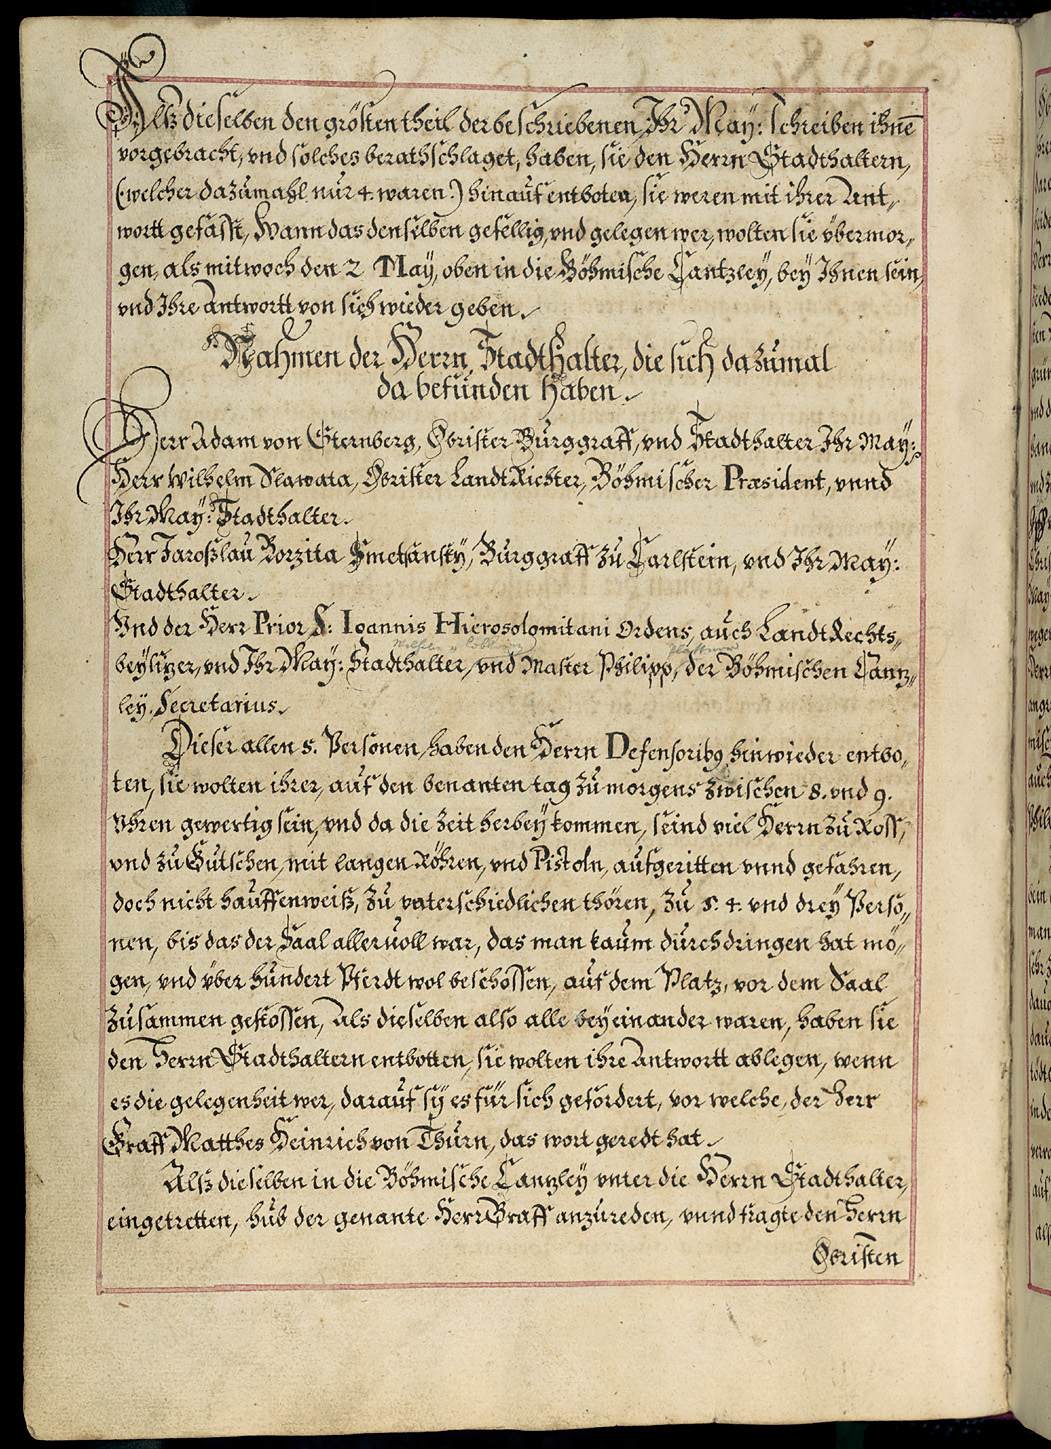 Alß dieselben den grösten theil der beschriebenen, Ihr May: schreiben ihnē
vorgebracht, vnd solches berathschlaget, haben, sie den Herrn Stadthaltern,
(: welcher dazumahl nur 4. waren :) hinauf entboten, sie weren mit ihrer Ant,,
wortt gefasst, Wann das denselben gefellig, vnd gelegen wer, wolten sie übermor,,
gen, als mitwoch den 2 May, oben in die Böhmische Cantzley, bey Ihnen sein,
vnd Ihre Antwortt von sich wieder geben.
Nahmen der Herrn, Stadthalter, die sich dazumal
da befunden haben.
Herr Adam von Sternberg, Obrister Burggraff, vnd Stadthalter Ihr May:
Herr Wilhelm Slawata, Obrister LandtRichter, Böhmischer Præsident, vnnd
Ihr May: Stadthalter.
Herr Jaroßlau Borzita Smetsansky, Burggraff zu Carlstein, vnd Ihr May:
Stadthalter.
Vnd der Herr Prior S: Ioannis Hierosolomitani Ordens, auch LandtRechts,,
beysitzer, vnd Ihr May: Stadthalter, vnd Master Philipp, der Böhmischen Cantz,,
ley, Secretarius.
Dieser allen 5. Personen, haben den Herrn Defensorib9 hinwieder entbo,,
ten, sie wolten ihrer, auf den benanten tag zu morgens zwischen 8. vnd 9.
Vhren gewertig sein, vnd da die zeit herbey kommen, seind viel Herrn zu Ross,
vnd zu Gutschen, mit langen Röhren, vnd Pistoln, aufgeritten vnnd gefahren,
doch nicht hauffenweiß, zu vnterschiedlichen thören, zu 5. 4. vnd drey Perso,,
nen, bis das der Saal aller uoll war, das man kaum durchdringen hat mö,,
gen, vnd über hundert Pferdt wol beschossen, auf dem Platz, vor dem Saal
zusammen gestossen, Als dieselben also alle beyeinander waren, haben sie
den Herrn Stadthaltern entbotten, sie wolten ihre Antwortt ablegen, wenn
es die gelegenheit wer, darauf sÿ es für sich gefordert, vor welche, der Herr
Graff Matthes Heinrich von Thurn, das wort geredt hat.
Alß dieselben in die Böhmische Cantzley vnter die Herrn Stadthalter,
eingetretten, hub der genante Herr Graff anzureden, vnnd fragte den Herrn
Obristen